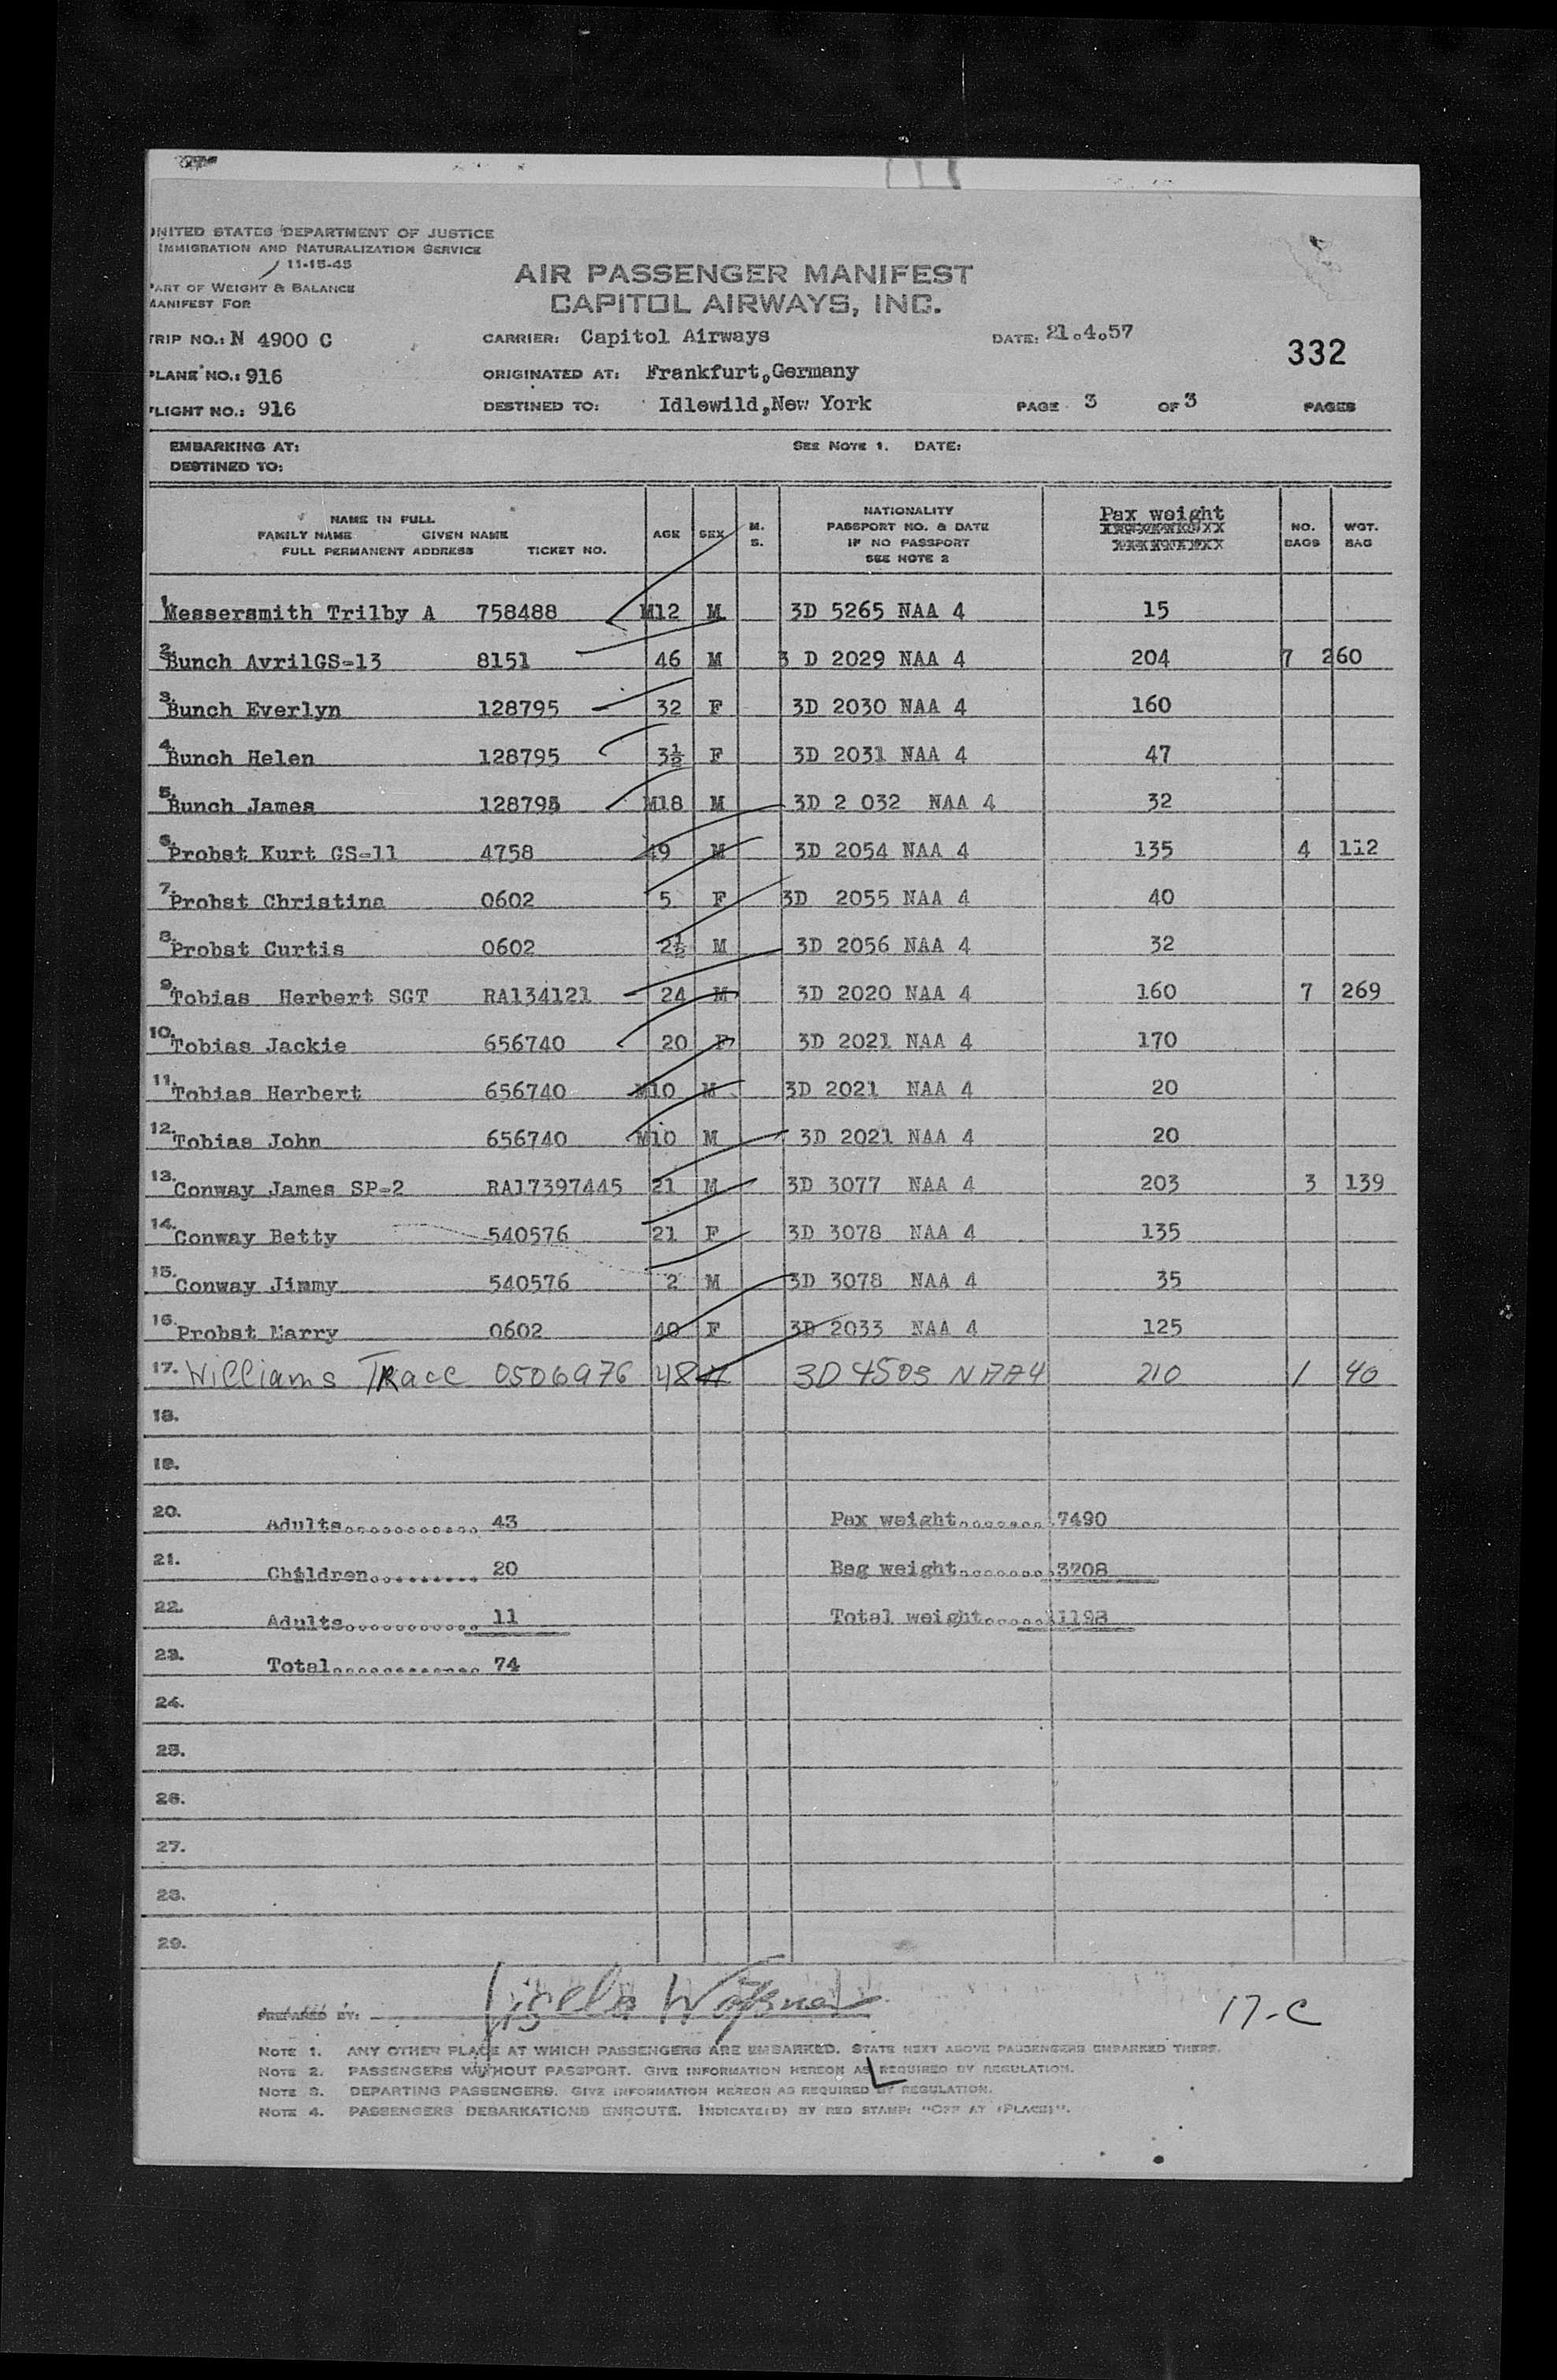 UNITED STATES DEPARTMENT OF JUSTICE
IMMIGRATION AND NATURALIZATION SERVICE
11-15-45
PART OF WEIGHT & BALANCE
MANIFEST FOR
AIR PASSENGER MANIFEST
CAPITOL AIRWAYS, INC.
TRIP NO.: N 4900 C CARRIER: Capitol Airways DATE: 21.4.57
332
PLANE NO.: 916 ORIGINATED AT: Frankfurt,Germany
FLIGHT NO.: 916 DESTINED TO: Idlewild,New York PAGE 3 OF 3 PAGES
EMBARKING AT: SEE NOTE 1. DATE:
DESTINED TO:
NAME IN FULL
FAMILY NAME GIVEN NAME
FULL PERMANENT ADDRESS TICKET NO.
AGE SEX M. S.
NATIONALITY
PASSPORT NO. & DATE
IF NO PASSPORT
SEE NOTE 2
Pax weight
NO. BAGS
WGT. BAG
1. Messersmith Trilby A 758488 M12 M 3D 5265 NAA 4 15
2. Bunch AvrilGS-13 8151 46 M 3 D 2029 NAA 4 204 7 260
3. Bunch Everlyn 128795 32 F 3D 2030 NAA 4 160
4. Bunch Helen 128795 3½ F 3D 2031 NAA 4 47
5. Bunch James 128795 M18 M 3D 2 032 NAA 4 32
6. Probst Kurt GS-11 4758 49 M 3D 2054 NAA 4 135 4 112
7. Probst Christina 0602 5 F 3D 2055 NAA 4 40
8. Probst Curtis 0602 2½ M 3D 2056 NAA 4 32
9. Tobias Herbert SGT RA134121 24 M 3D 2020 NAA 4 160 7 269
10. Tobias Jackie 656740 20 F 3D 2021 NAA 4 170
11. Tobias Herbert 656740 M10 M 3D 2021 NAA 4 20
12. Tobias John 656740 M10 M 3D 2021 NAA 4 20
13. Conway James SP-2 RA17397445 21 M 3D 3077 NAA 4 203 3 139
14. Conway Betty 540576 21 F 3D 3078 NAA 4 135
15. Conway Jimmy 540576 2 M 3D 3078 NAA 4 35
16. Probst Marry 0602 40 F 3D 2033 NAA 4 125
17. Williams TRace 0506976 48 M 3D 4503 NAA4 210 1 40
18.
19.
20. Adults............ 43 Pax weight........ 7490
21. Children.......... 20 Bag weight........ 3708
22. Adults............ 11 Total weight..... 11198
23. Total............. 74
24.
25.
26.
27.
28.
29.
PREPARED BY: Gisela
17-C
NOTE 1. ANY OTHER PLACE AT WHICH PASSENGERS ARE EMBARKED. STATE NEXT ABOVE PASSENGERS EMBARKED THERE.
NOTE 2. PASSENGERS WITHOUT PASSPORT. GIVE INFORMATION HEREON AS REQUIRED BY REGULATION.
NOTE 3. DEPARTING PASSENGERS. GIVE INFORMATION HEREON AS REQUIRED BY REGULATION.
NOTE 4. PASSENGERS DEBARKATIONS ENROUTE. INDICATE(D) BY RED STAMP: "OFF AT (PLACE)".